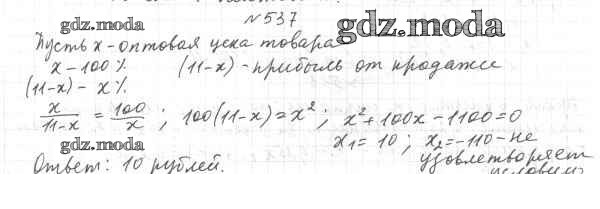 №537
gdz.moda
gdz.moda
Пусть x - оптовая цена товара
x - 100 % (11-x) - прибыль от продажи
(11-x) - x %
x/(11-x) = 100/x ; 100(11-x) = x² ; x² + 100x - 1100 = 0
gdz.moda
x₁ = 10 ; x₂ = -110 - не
Ответ: 10 рублей. удовлетворяет
условию